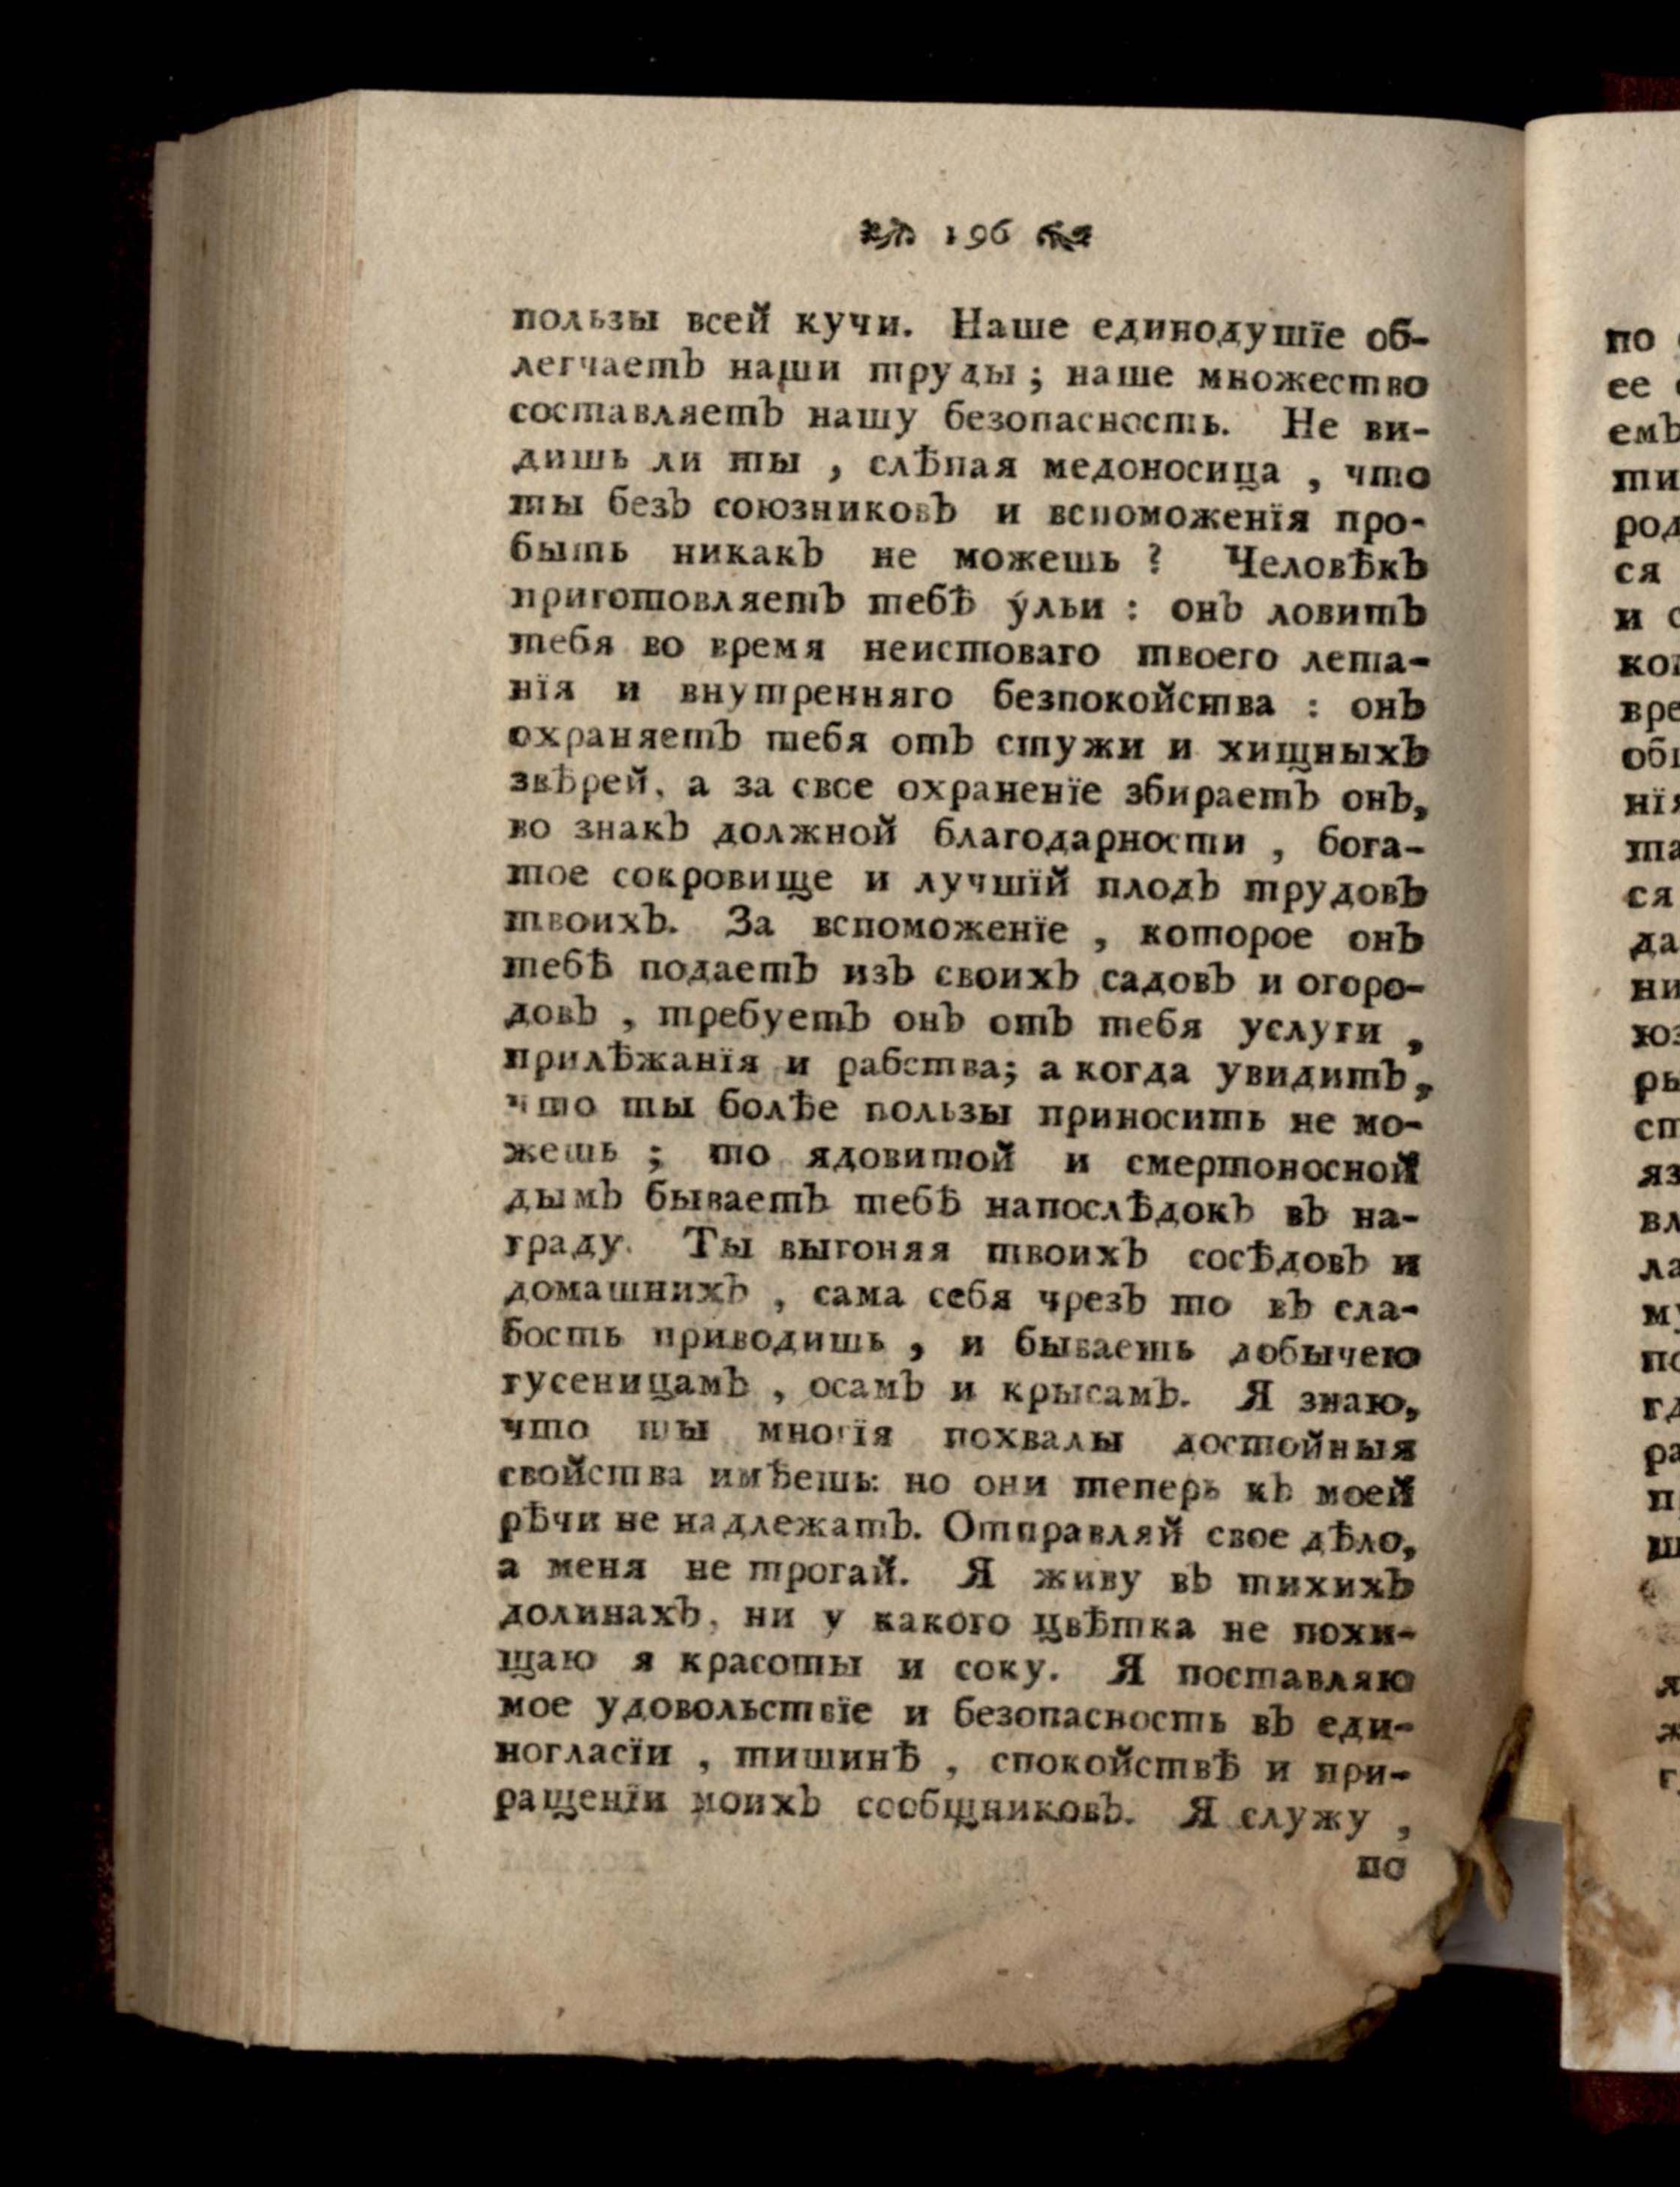 196
пользы всей кучи. Наше единодушїе об-
легчаетъ наши труды ; наше множество
составляетъ нашу безопасность. Не ви-
дишь ли ты , слѣпая медоносица , что
ты безъ союзниковъ и вспоможенїя про-
быть никакъ не можешь ? Человѣкъ
приготовляетъ тебѣ у́льи : онъ ловитъ
тебя во время неистоваго твоего лета-
нїя и внутренняго безпокойства : онъ
охраняетъ тебя отъ стужи и хищныхъ
звѣрей, а за свое охраненїе збираетъ онъ,
во знакъ должной благодарности , бога-
тое сокровище и лучшїй плодъ трудовъ
твоихъ. За вспоможенїе , которое онъ
тебѣ подаетъ изъ своихъ садовъ и огоро-
довъ , требуетъ онъ отъ тебя услуги ,
прилѣжанїя и рабства; а когда увидитъ,
что ты болѣе пользы приносить не мо-
жешь ; то ядовитой и смертоносной
дымъ бываетъ тебѣ напослѣдокъ въ на-
граду. Ты выгоняя твоихъ сосѣдовъ и
домашнихъ , сама себя чрезъ то въ сла-
бость приводишь , и бываешь добычею
гусеницамъ , осамъ и крысамъ. Я знаю,
что ты многїя похвалы достойныя
свойства имѣешь: но они теперь къ моей
рѣчи не надлежатъ. Отправляй свое дѣло,
а меня не трогай. Я живу въ тихихъ
долинахъ, ни у какого цвѣтка не похи-
щаю я красоты и соку. Я поставляю
мое удовольствїе и безопасность въ еди-
ногласїи , тишинѣ , спокойствѣ и при-
ращенїи моихъ сообщниковъ. Я служу ,
по